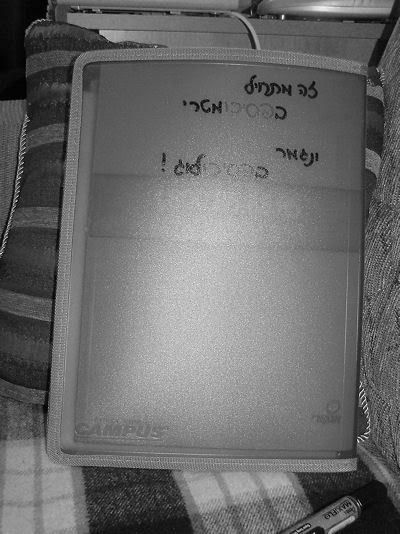 זה מתחיל
בפסיכומטרי
ונגמר
בפסיכולוג !
CAMPUS